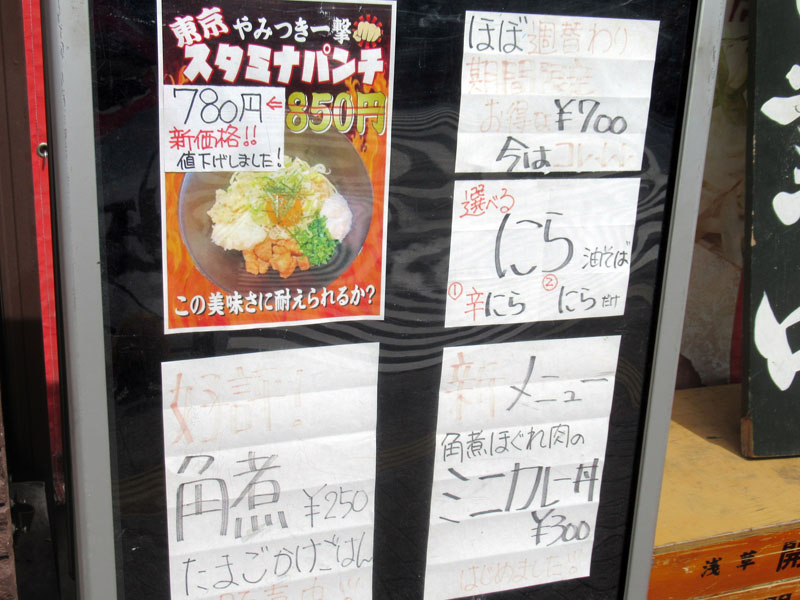 東京
やみつき一撃
スタミナパンチ
780円 ← 850円
新価格!!
値下げしました!
この美味さに耐えられるか?
ほぼ週替わり
期間限定
お得な ¥700
今はコレ↓↓↓
選べる
にら 油そば
① 辛にら ② にらだけ
好評!
角煮 ¥250
たまごかけごはん
新メニュー
角煮ほぐれ肉の
ミニカレー丼
¥300
はじめました!!
浅草 開